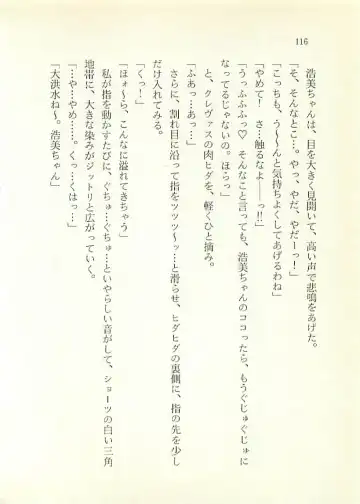 116
浩美ちゃんは、目を大きく見開いて、高い声で悲鳴をあげた。
「そ、そんなとこ…。やっ、やだ、やだーっ！」
「こっちも、う～んと気持ちよくしてあげるわね」
「やめて！　さ…触るなよ――っ!!」
「うっふふふっ♡　そんなこと言っても、浩美ちゃんのココったら、もうぐじゅぐじゅに
なってるじゃないの。ほらっ」
と、クレヴァスの肉ヒダを、軽くひと摘み。
「ふあっ…あっ…」
さらに、割れ目に沿って指をツッツ～ッ…と滑らせ、ヒダヒダの裏側に、指の先を少し
だけ入れてみる。
「くっ！」
「ほぉ～ら、こんなに溢れてきちゃう」
私が指を動かすたびに、ぐちゅ…ぐちゅ…といやらしい音がして、ショーツの白い三角
地帯に、大きな染みがジットリと広がっていく。
「…や…やめろ…。くっ…くはっ…」
「大洪水ね～。浩美ちゃん」